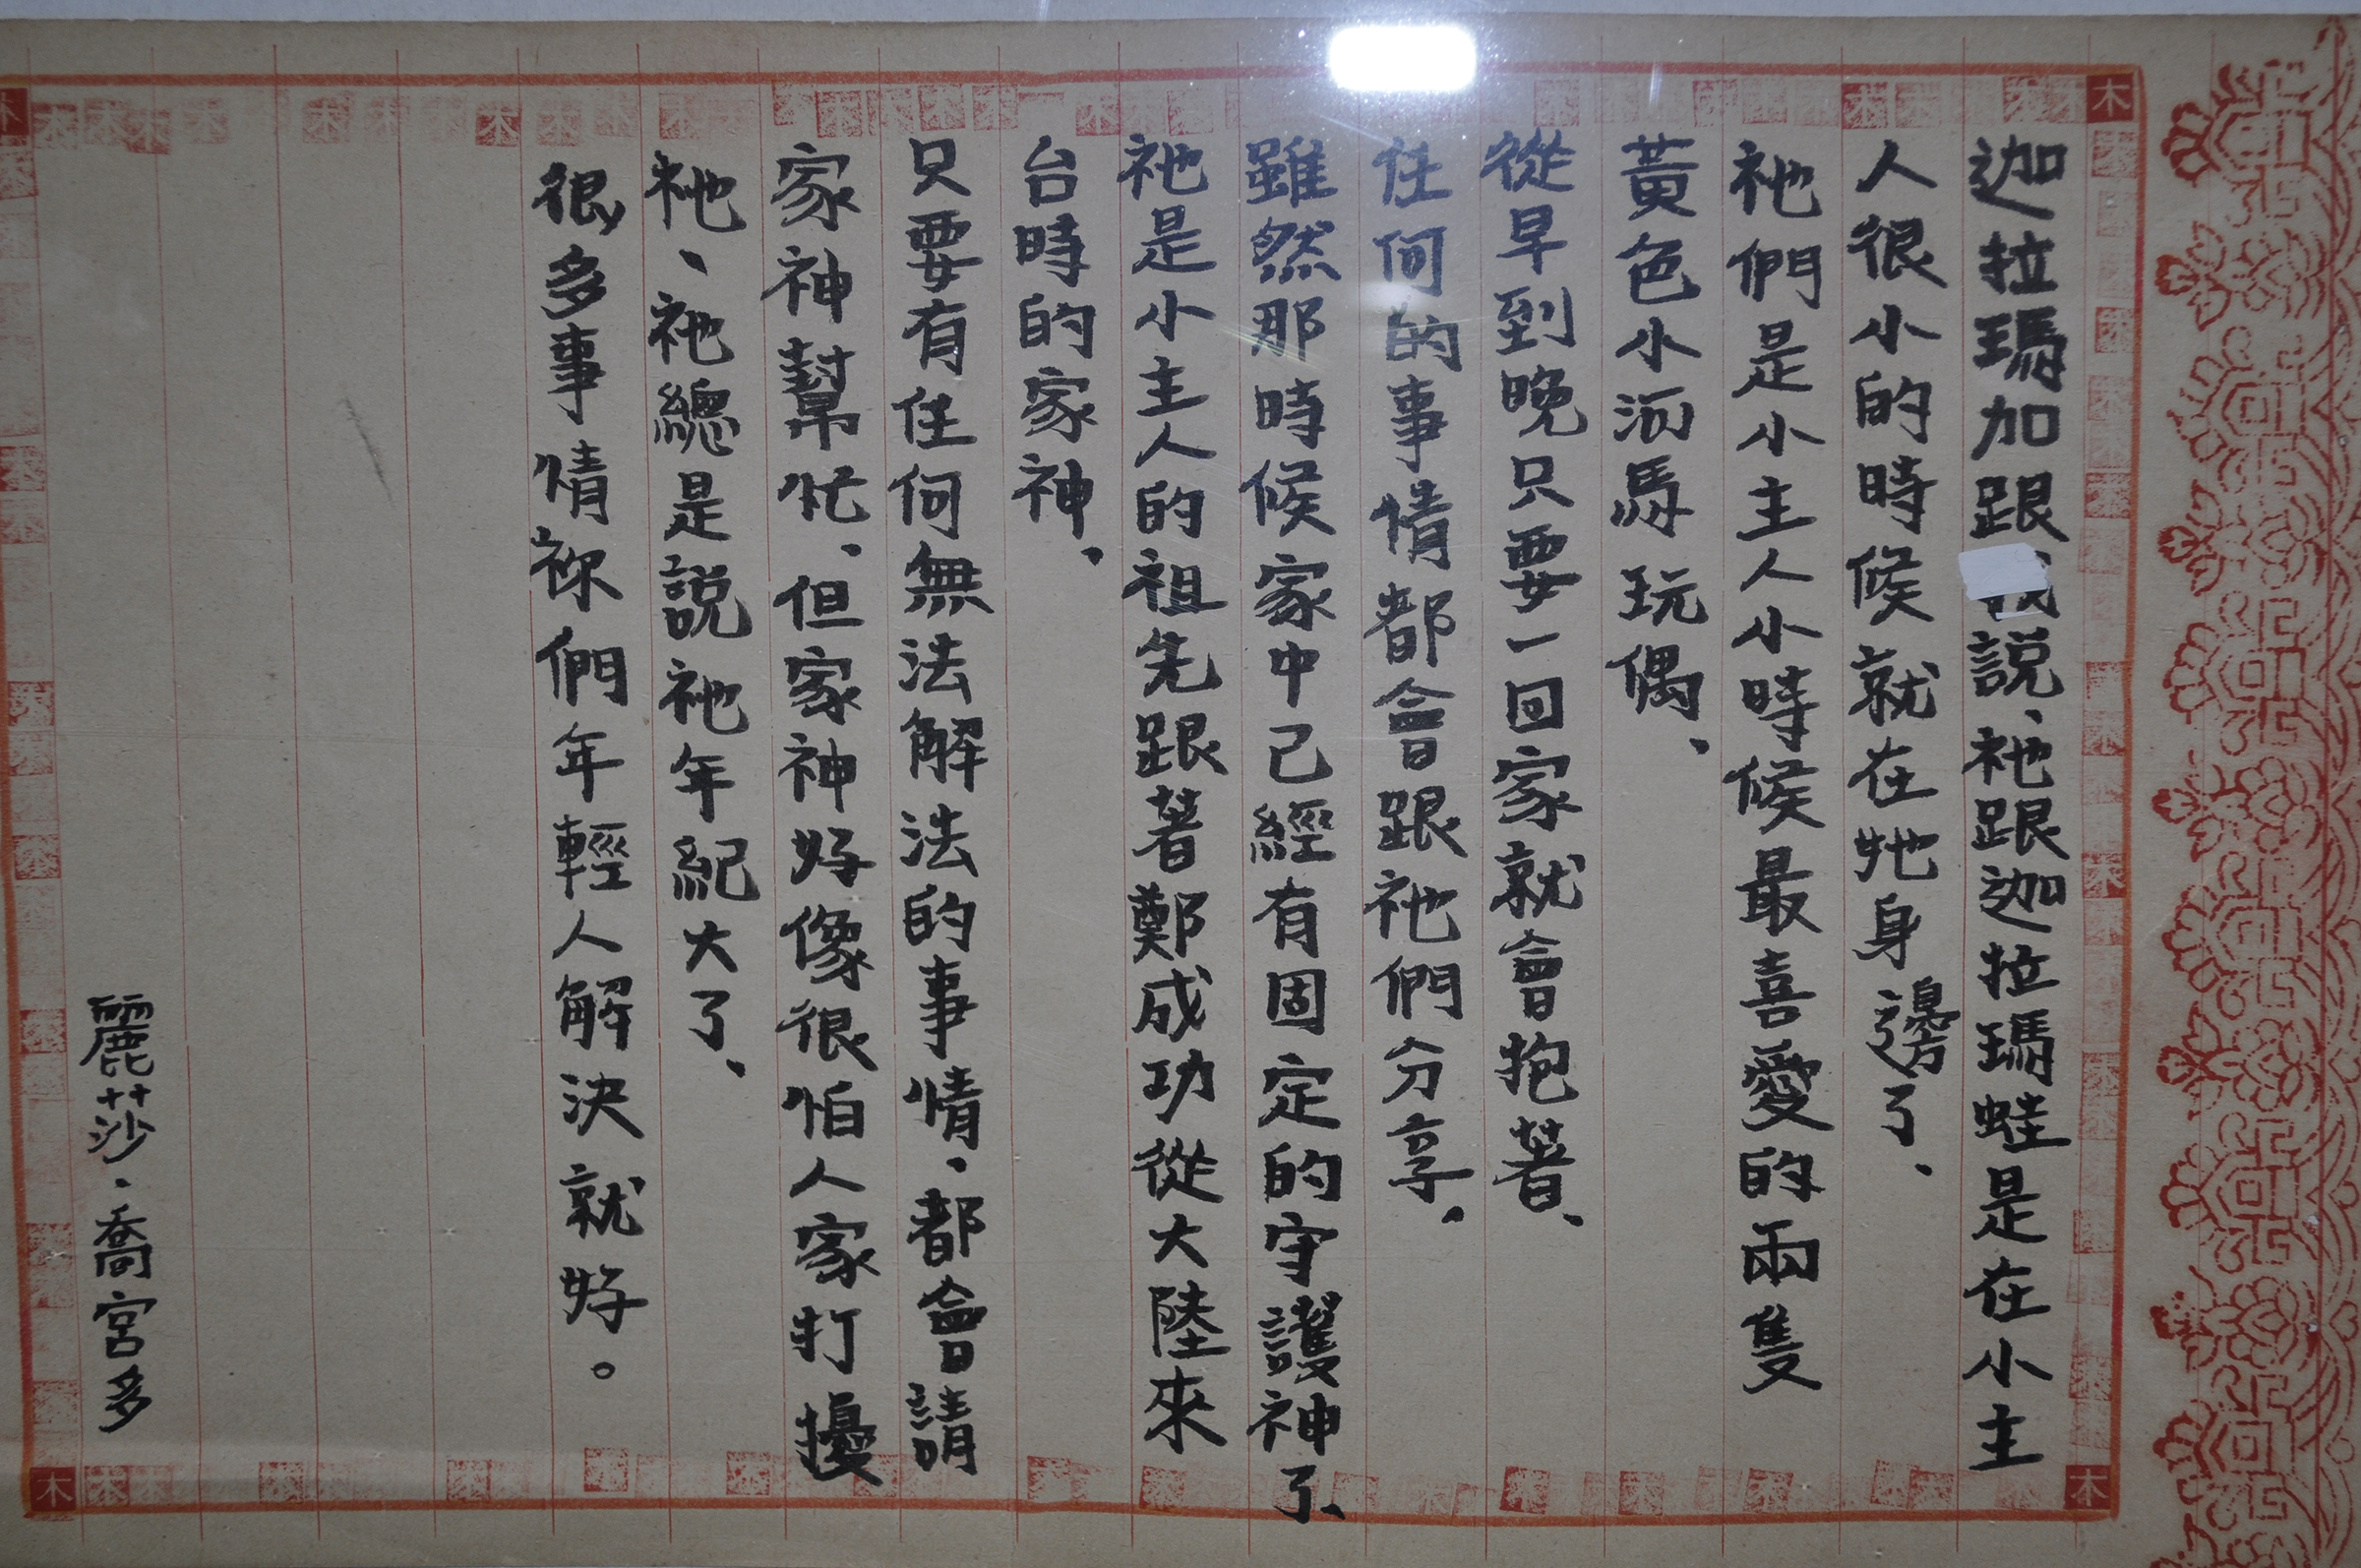 迦拉瑪加跟我說、祂跟迦拉瑪蛙是在小主
人很小的時候就在牠身邊了、
祂們是小主人小時候最喜愛的兩隻
黃色小河馬玩偶、
從早到晚只要一回家就會抱著、
任何的事情都會跟祂們分享、
雖然那時候家中已經有固定的守護神了、
祂是小主人的祖先跟著鄭成功從大陸來
台時的家神、
只要有任何無法解法的事情、都會請
家神幫忙、但家神好像很怕人家打擾
祂、祂總是說祂年紀大了、
很多事情祢們年輕人解決就好。
麗莎、喬宮多
木
木
木
木